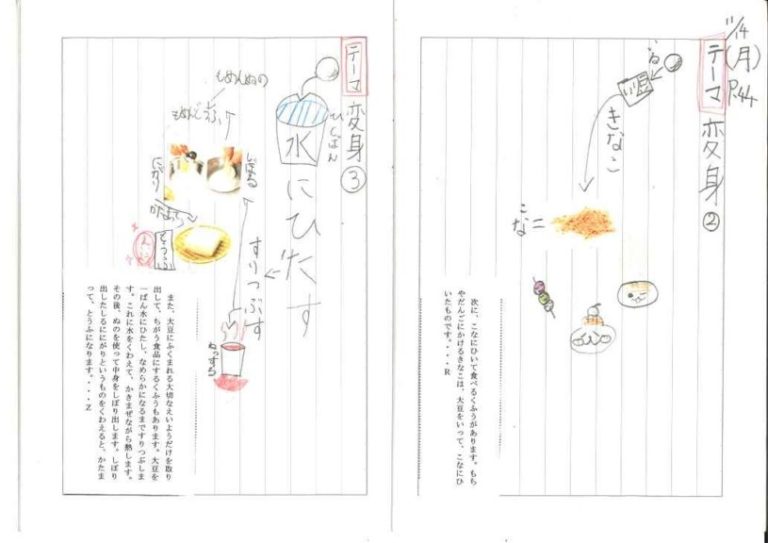 11/14
(月)
P.44
テーマ
変身②
いる
豆
きなこ
こな＝
次に、こなにひいて食べるくふうがあります。もち
やだんごにかけるきなこは、大豆をいって、こなにひ
いたものです。・・・・R
テーマ
変身③
ひとばん
水
にひたす
すりつぶす
ねっする
もめんぬの
しぼる
にがり
かたまる
とうふ
また、大豆にふくまれる大切なえいようだけを取り
出して、ちがう食品にするくふうもあります。大豆を
一ばん水にひたし、なめらかになるまですりつぶしま
す。これに水をくわえて、かきまぜながら熱します。
その後、ぬのを使って中身をしぼり出します。しぼり
出したしるににがりというものをくわえると、かたま
って、とうふになります。・・・・Z